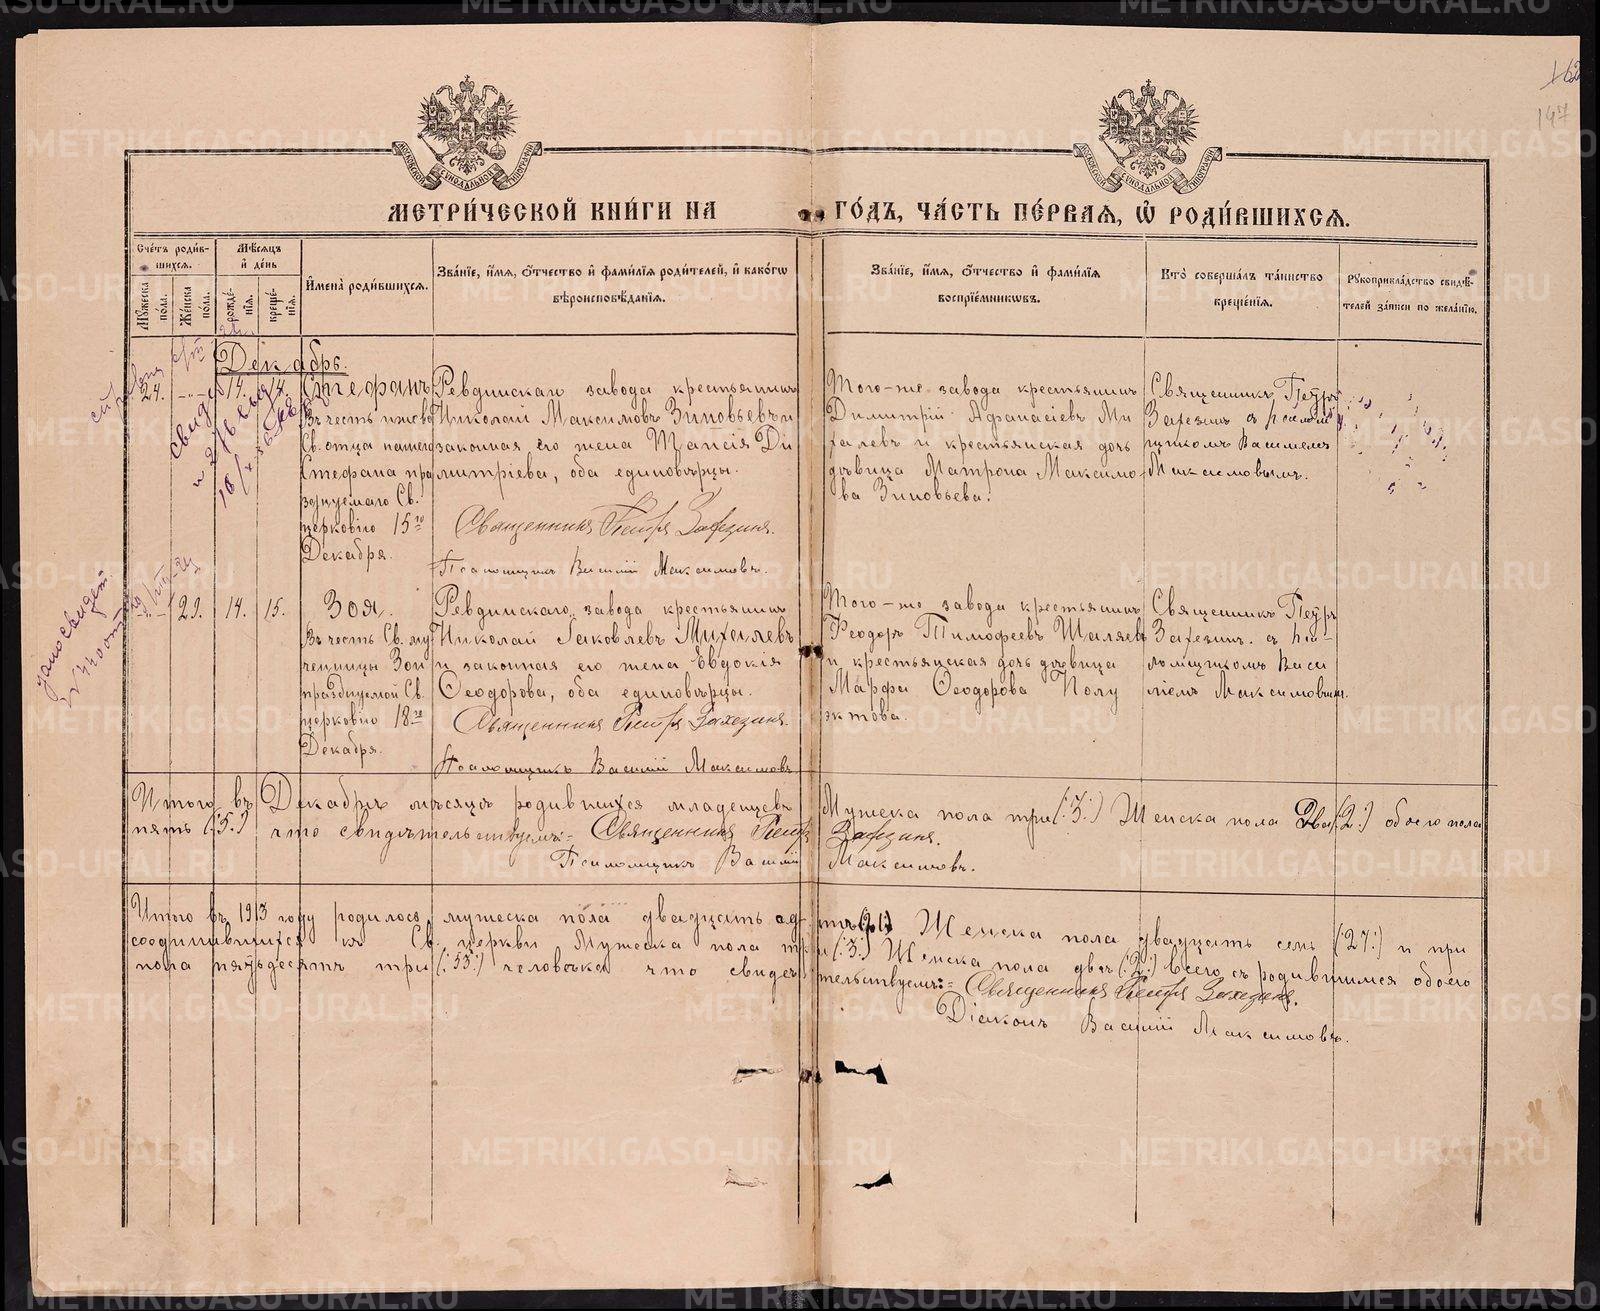 162
147
МЕТРИ́ЧЕСКОЙ КНИ́ГИ НА ГО́ДЪ, ЧА́СТЬ ПЕ́РВАѦ, Ѽ РОДИ́ВШИХСѦ.
Сче́тъ роди́вшихсѧ.
Мꙋ́жеска по́ла.
Же́нска по́ла.
Мѣ́сѧцъ и҆ де́нь
рожде́нїѧ.
креще́нїѧ.
И҆мена̀ роди́вшихсѧ.
Зва́нїе, и҆́мѧ, ѻ҆́тчество и҆ фами́лїѧ роди́телей, и҆ како́гѡ
вѣроисповѣ́данїѧ.
Зва́нїе, и҆́мѧ, ѻ҆́тчество и҆ фами́лїѧ
воспрїе́мникѡвъ.
Кто̀ соверша́лъ та́инство
креще́нїѧ.
Рꙋкоприкла́дство свидѣ́-
телей за́писи по жела́нїю.
Декабрь.
24. -"- 14. 14.
Стефанъ
Въ честь
Св. отца нашего
Стефана пра
зднуемаго Св.
церковію 15го
Декабря.
Ревдинскаго завода крестьянинъ
Николай Максимовъ Зиновьевъ и
законная его жена Таисія Ди
митріева, оба единовѣрцы.
Священникъ Петръ Захезинъ.
Псаломщикъ Василій Максимовъ.
Того-же завода крестьянинъ
Димитрій Афанасіевъ Ми
халевъ и крестьянская дочь
дѣвица Матрона Максимо-
ва Зиновьева.
Священникъ Петръ
Захезинъ съ псалом
щикомъ Василіемъ
Максимовымъ.
-"- 29. 14. 15.
Зоя.
Въ честь Св. му
ченицы Зои
празднуемой Св.
церковію 18го
Декабря.
Ревдинскаго завода крестьянинъ
Николай Іаковлевъ Михалевъ
и законная его жена Евдокія
Ѳеодорова, оба единовѣрцы.
Священникъ Петръ Захезинъ.
Псаломщикъ Василій Максимовъ
Того-же завода крестьянинъ
Феодоръ Тимофеевъ Шаляевъ
и крестьянская дочь дѣвица
Марфа Ѳеодорова Полу
эктова.
Священникъ Петръ
Захезинъ. съ пса-
ломщикомъ Васи
ліемъ Максимовымъ.
Итого въ Декабрѣ мѣсяцѣ родившихся младенцевъ Мужеска пола три (:3:) Женска пола два (:2:) обоего пола
пять (:5:) что свидѣтельствуемъ:= Священникъ Петръ Захезинъ.
Псаломщикъ Василій Максимовъ.
Итого въ 1913 году родилось мужеска пола двадцать Женска пола двадцать семь (:27:) и при
соединившихся къ Св. церкви Мужеска пола три (:3:) Женска пола двѣ (:2:) всего съ родившимся обоего
пола пятьдесятъ три (:53:) человѣка что свидетельствуемъ:= Священникъ Петръ Захезинъ.
Діаконъ Василій Максимовъ.
METRIKI.GASO-URAL.RU